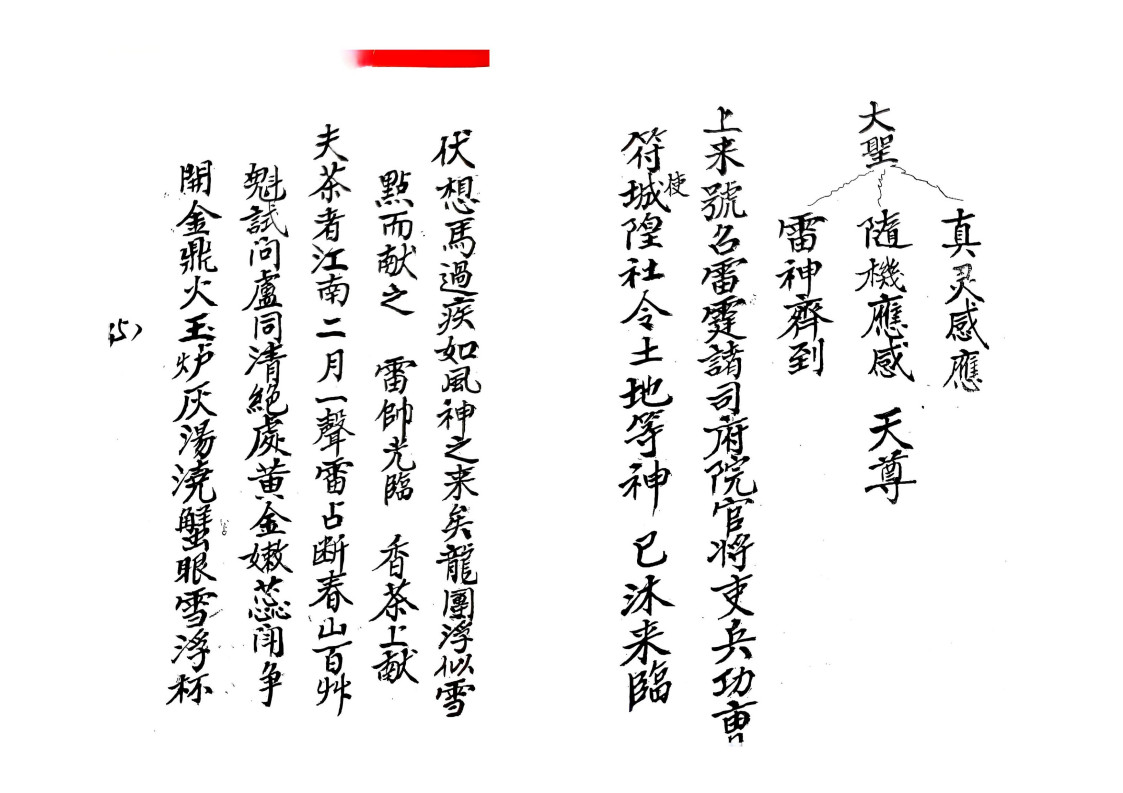 大聖
真灵感應
隨機應感 天尊
雷神齊到
上来號召雷霆諸司府院官将吏兵功曹
符使城隍社令土地等神 已沐来臨
伏想馬過疾如風神之来矣龍團浮似雪
點而献之 雷帥光臨 香茶上献
夫茶者江南二月一聲雷占断春山百艸
魁試问盧同清絕處黄金嫩蕊闹争
開金鼎火玉炉灰湯澆蟹眼雪浮杯
15